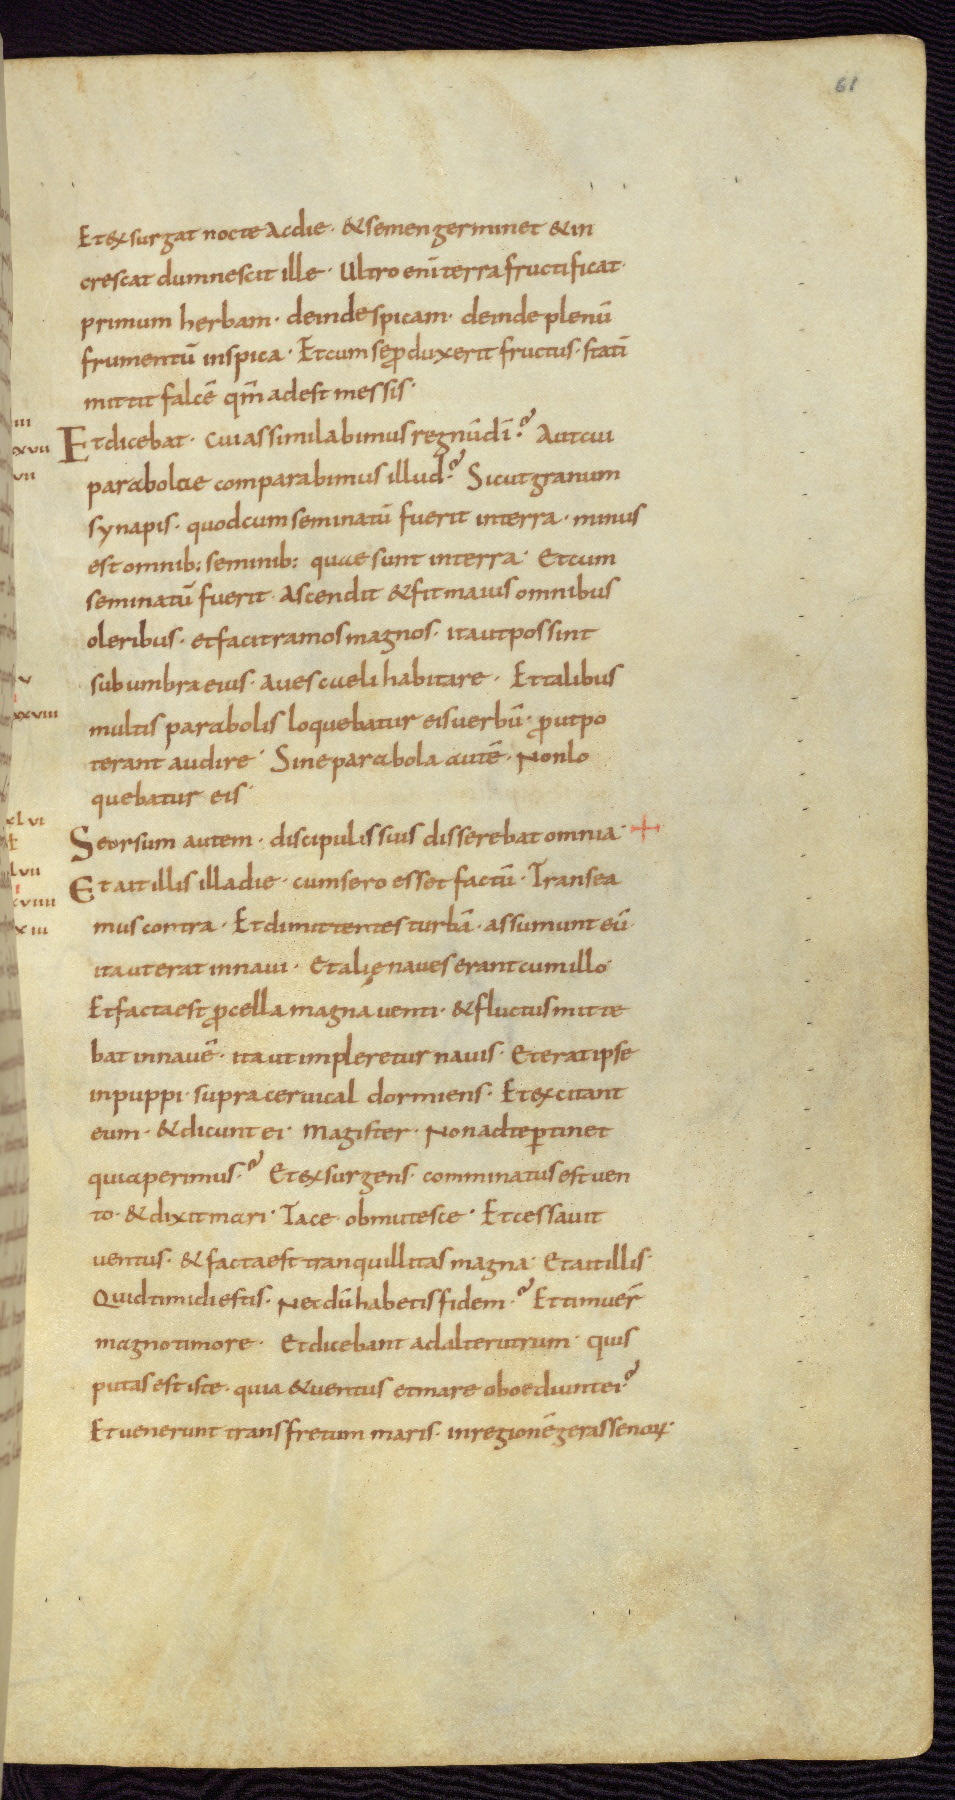 61
Et exsurgat nocte ac die · & semen germinet & in
crescat dum nescit ille · Ultro eni̅ terra fructificat ·
primum herbam · deinde spicam · deinde plenu̅
frumentu̅ in spica · Et cum se ꝓduxerit fructus · stati̅
mittit falce̅ qm̅ adest messis ·
Et dicebat · Cui assimilabimus regnu̅ di̅ ? Aut cui
parabolae comparabimus illud ? Sicut granum
synapis · quod cum seminatu̅ fuerit in terra · minus
est omnib: seminib: quae sunt in terra · Et cum
seminatu̅ fuerit · Ascendit & fit maius omnibus
oleribus · et facit ramos magnos · ita ut possint
sub umbra eius · aues caeli habitare · Et talibus
multis parabolis loquebatur eis uerbu̅ · ꝓut po
terant audire · Sine parabola aute̅ · Non lo
quebatur eis ·
Seorsum autem · discipulis suis disserebat omnia ·
Et ait illis illa die · cum sero esset factu̅ · Transea
mus contra · Et dimittentes turba̅ · assumunt eu̅ ·
ita ut erat in naui · Et alię naues erant cum illo ·
Et facta est ꝓcella magna uenti · & fluctus mitte
bat in naue̅ · ita ut impleretur nauis · Et erat ipse
in puppi · supra ceruical dormiens · Et excitant
eum · & dicunt ei · Magister · Non ad te ꝑtinet
quia perimus ? Et exsurgens · comminatus est uen
to · & dixit mari · Tace obmutesce · Et cessauit
uentus · & facta est tranquillitas magna · Et ait illis ·
Quid timidi estis · Necdu̅ habetis fidem ? Et timuer̅
magno timore · Et dicebant ad alterutrum · Quis
putas est iste · quia & uentus et mare oboediunt ei ?
Et uenerunt trans fretum maris · in regione̅ gerassenoꝝ ·